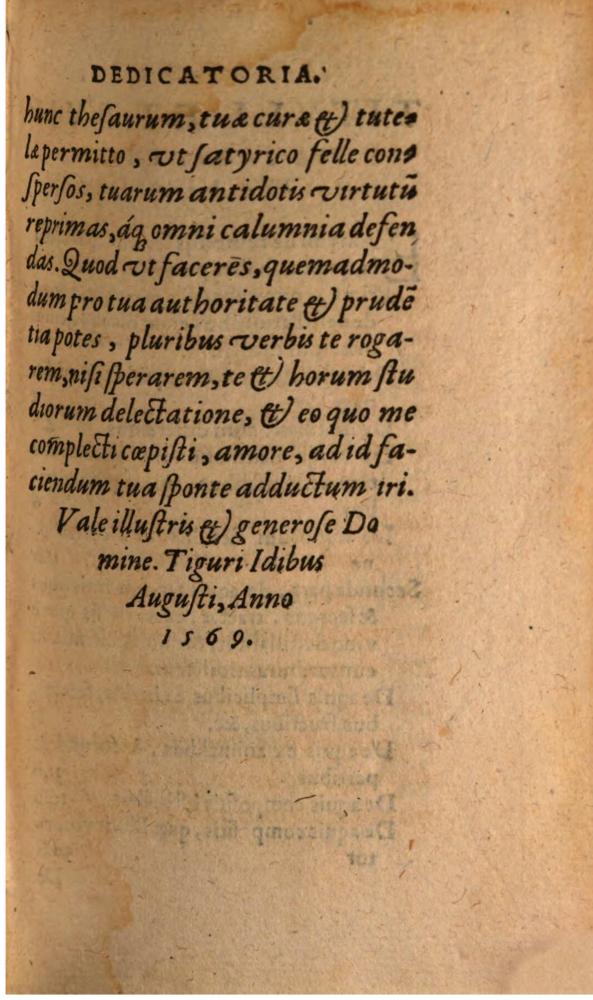 DEDICATORIA.
hunc theſaurum, tuæ curæ & tute-
læ permitto, vt ſatyrico felle con-
ſperſos, tuarum antidotis virtutũ
reprimas, áq̃ omni calumnia defen
das. Quod vt facerẽs, quemadmo-
dum pro tua authoritate & prudẽ
tia potes, pluribus verbis te roga-
rem, niſi ſperarem, te & horum ſtu
diorum delectatione, & eo quo me
com̃plecti cœpiſti, amore, ad id fa-
ciendum tua ſponte adductum iri.
Vale illuſtris & generoſe Do
mine. Tiguri Idibus
Auguſti, Anno
1569.